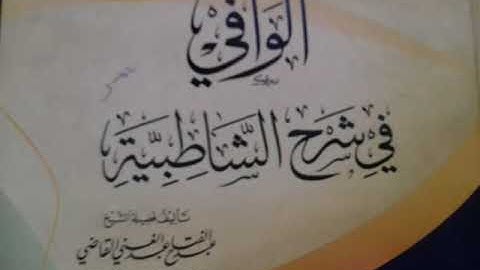 الوافي
في شرح الشاطبية
تأليف فضيلة الشيخ
عبد الفتاح عبد الغني القاضي